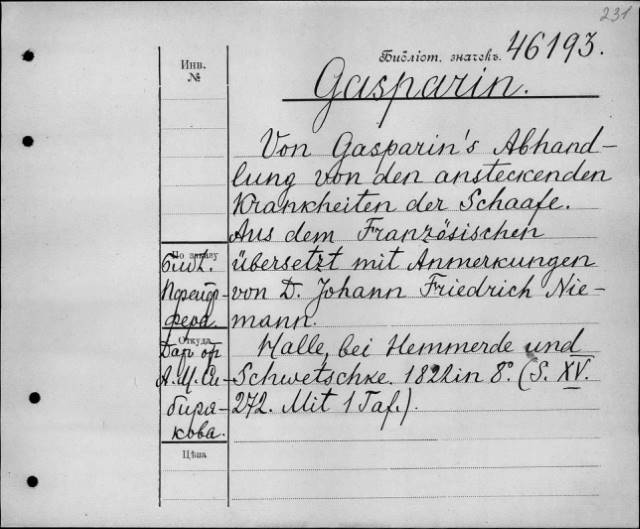 231
Библіот. значекъ. 46193.
Инв.
№
Gasparin.
Von Gasparin's Abhand-
lung von den ansteckenden
Krankheiten der Schaafe.
Aus dem Französischen
übersetzt mit Anmerkungen
von D. Johann Friedrich Nie-
mann.
Halle, bei Hemmerde und
Schwetschke. 1822 in 8°. (S. XV.
272. Mit 1 Taf.).
По заказу
Библ.
Пфейф-
фера.
Откуда
Дар от
А. М. Си-
биря-
кова.
Цѣна